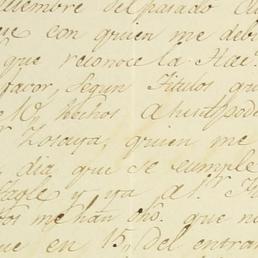 tiembre del pasado
con quien me debi
que reconoce la Haz
facor, segun Titulos qu
M. hechos á
Zozaya, quien me
dia, que se cumple
tagle y ya al Sr.
me han dho. que n
que en 15, del entran